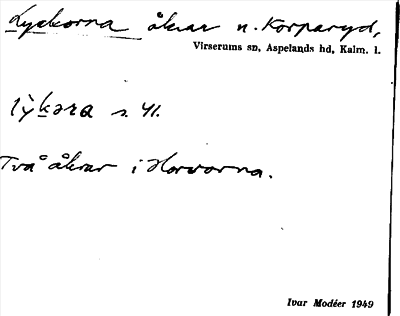 Lyckorna åkrar n. Korparyd,
Virserums sn, Aspelands hd, Kalm. l.
lỳkəra s. pl.
Två åkrar i Horvorna.
Ivar Modéer 1949